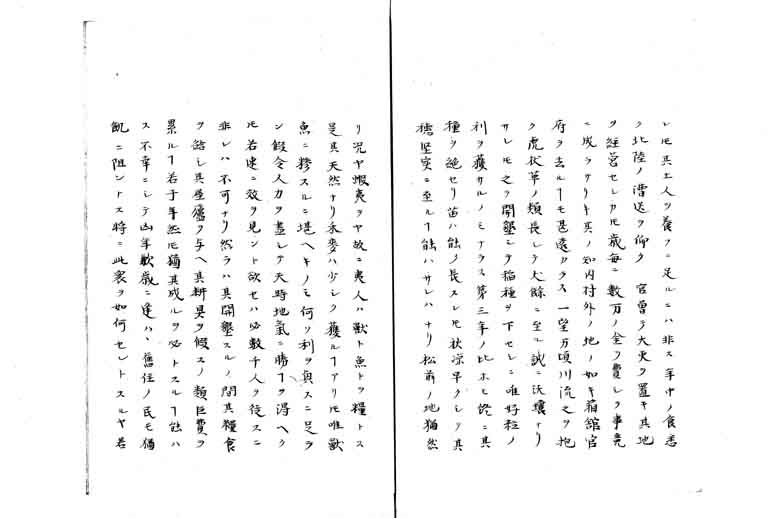 レモ其土人ヲ養フニ足ルニハ非ス年中ノ食悉
ク北陸ノ漕送ヲ仰ク　官曽テ大吏ヲ置キ其地
ヲ経営セシカモ歳毎ニ數万ノ金ヲ費シテ事竟
ニ成ラサリキ其ノ知内村外ノ地ノ如キ箱舘官
府ヲ去ルヿモ甚遠カラス一望万頃川流之ヲ抱
ク虎伏草ノ類長シテ丈餘ニ至ル誠ニ沃壤ナリ
サレモ之ヲ開墾シテ稲種ヲ下セシニ唯好粒ノ
利ヲ獲サルノミナラス第三年ノ比ホヒ終ニ其
種ヲ絶セリ苗ハ能ノ長スレモ秋凉早クシテ其
穂堅実ニ至ルヿ能ハサレハナリ松前ノ地猶然
リ况ヤ蝦夷ヲヤ故ニ夷人ハ獣ト魚トヲ糧トス
是其天然ナリ禾麥ハ少シク獲ルヿアリモ唯獣
魚ニ糝スルニ堪ヘキノミ何ソ利ヲ興スニ足ラ
ン假令人力ヲ盡シテ天時地氣ニ勝ヿヲ得ヘク
モ若速ニ效ヲ見ント欲セハ必數千人ヲ徒スニ
非レハ不可ナリ然ラハ其開墾スルノ間其糧食
ヲ給シ其屋廬ヲ与ヘ其耕具ヲ假スノ類巨費ヲ
累ルヿ若干年然モ猶其成ルヲ必トスルヿ能ハ
ス不幸ニシテ凶年歉歳ニ逢ハヽ舊住ノ民モ猶
飢ニ阻ントス時ニ此衆ヲ如何セントスルヤ若